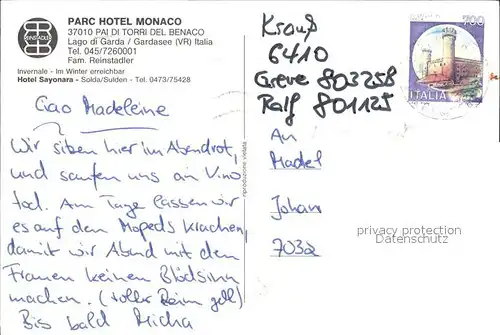 PARC HOTEL MONACO
37010 PAI DI TORRI DEL BENACO
Lago di Garda / Gardasee (VR) Italia
Tel. 045/7260001
Fam. Reinstadler
Invernale - Im Winter erreichbar
Hotel Sayonara - Solda/Sulden - Tel. 0473/75428
REINSTADLER
Ciao Madeleine
Wir sitzen hier im Abendrot,
und saufen uns an Vino
tod. Am Tage lassen wir
es auf den Mopeds krachen,
damit wir Abend mit den
Frauen keinen Blödsinn
machen. (toller Reim gell)
Bis bald Micha
riproduzione vietata
Krauß
6410
Greve 803258
Ralf 801125
700
ITALIA
An
Madel
Johan
7032
privacy protection
Datenschutz